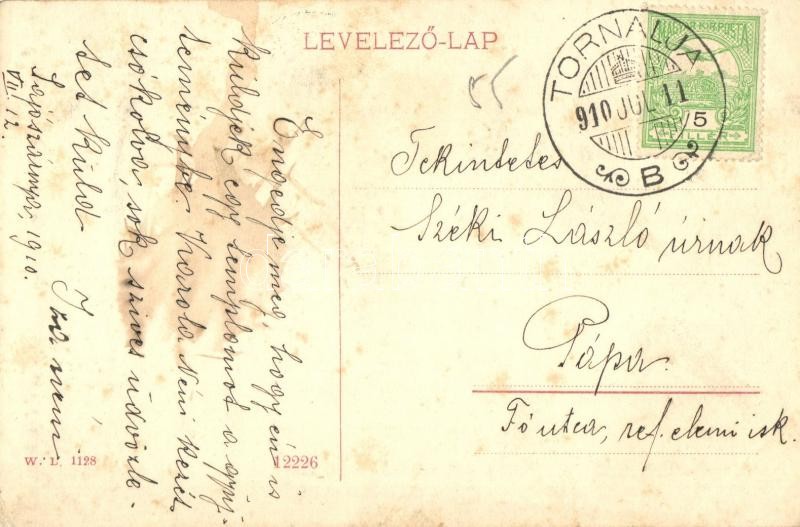 LEVELEZŐ-LAP
55
TORNALJA
910 JUL 11
B
MAGYAR KIR. POSTA
5
Tekintetes
Széki László úrnak
Pápa.
Fő utca, ref. elemi isk.
Engedje meg, hogy én is
küldjek egy templomot a gyüj-
teménybe. Karola néni kezét
csókolva, sok szives üdvözle-
tet küld
néni
Sajószárnya, 1910.
VII. 12.
W. L. 1128
12226